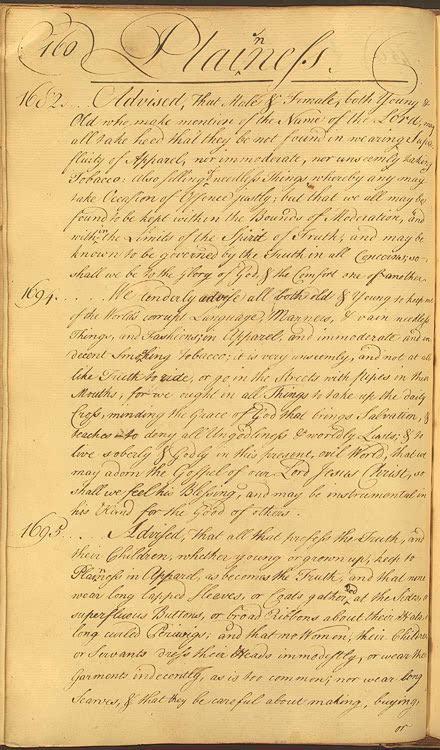 160 Plainness.
1682... Advised, That Male & Female, both Young &
Old who make mention of the Name of the Lord, may
all take heed that they be not found in wearing Super
fluity of Apparel, nor immoderate, nor unseemly taking
Tobacco: Also selling needless Things whereby any may
take Occasion of Offence justly; but that we all may be
found to be kept within the Bounds of Moderation, and
within the Limits of the Spirit of Truth; and may be
known to be governed by the Truth in all Concerns, so
shall we be to the Glory of God, & the Comfort one of another.
1694..... We tenderly advise all both old & Young to keep out
of the World's corrupt Language, Manners, & vain needless
Things, and Fashions, in Apparel; and immoderate and in
decent Smoking Tobacco; it is very unseemly, and not at all
like Truth to ride, or go in the Streets with pipes in their
Mouths, for we ought in all Things to take up the daily
Cross, minding the Grace of God that brings Salvation, &
teaches to deny all Ungodliness & worldly Lusts, & to
live soberly & Godly in this present, evil World, that we
may adorn the Gospel of our Lord Jesus Christ, so
shall we feel his Blessing, and may be instrumental in
his Hand for the Good of others.
1695... Advised, That all that profess the Truth, and
their Children, whether young or grown up, keep to
Plainness in Apparel, as becomes the Truth, and that none
wear long lapped Sleeves, or Coats gathered at the Sides, or
superfluous Buttons, or broad Ribbons about their Hats, or
long curled Periwigs; and that no Women, their Children
or Servants dress their Heads immodestly, or wear their
Garments indecently, as is too common; nor wear long
Scarves, & that they be careful about making, buying,
or